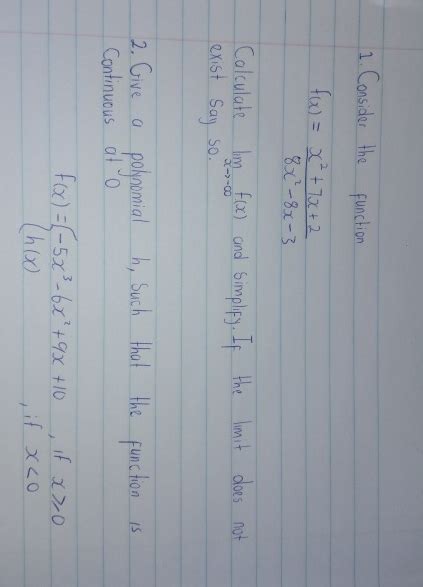 1. Consider the function
f(x) = x² + 7x + 2
8x² - 8x - 3
Calculate lim f(x) and simplify. If the limit does not
x→-∞
exist say so.
2. Give a polynomial h, such that the function is
Continuous at 0
f(x) = { -5x³ - 6x² + 9x + 10 , if x ≥ 0
h(x) , if x < 0